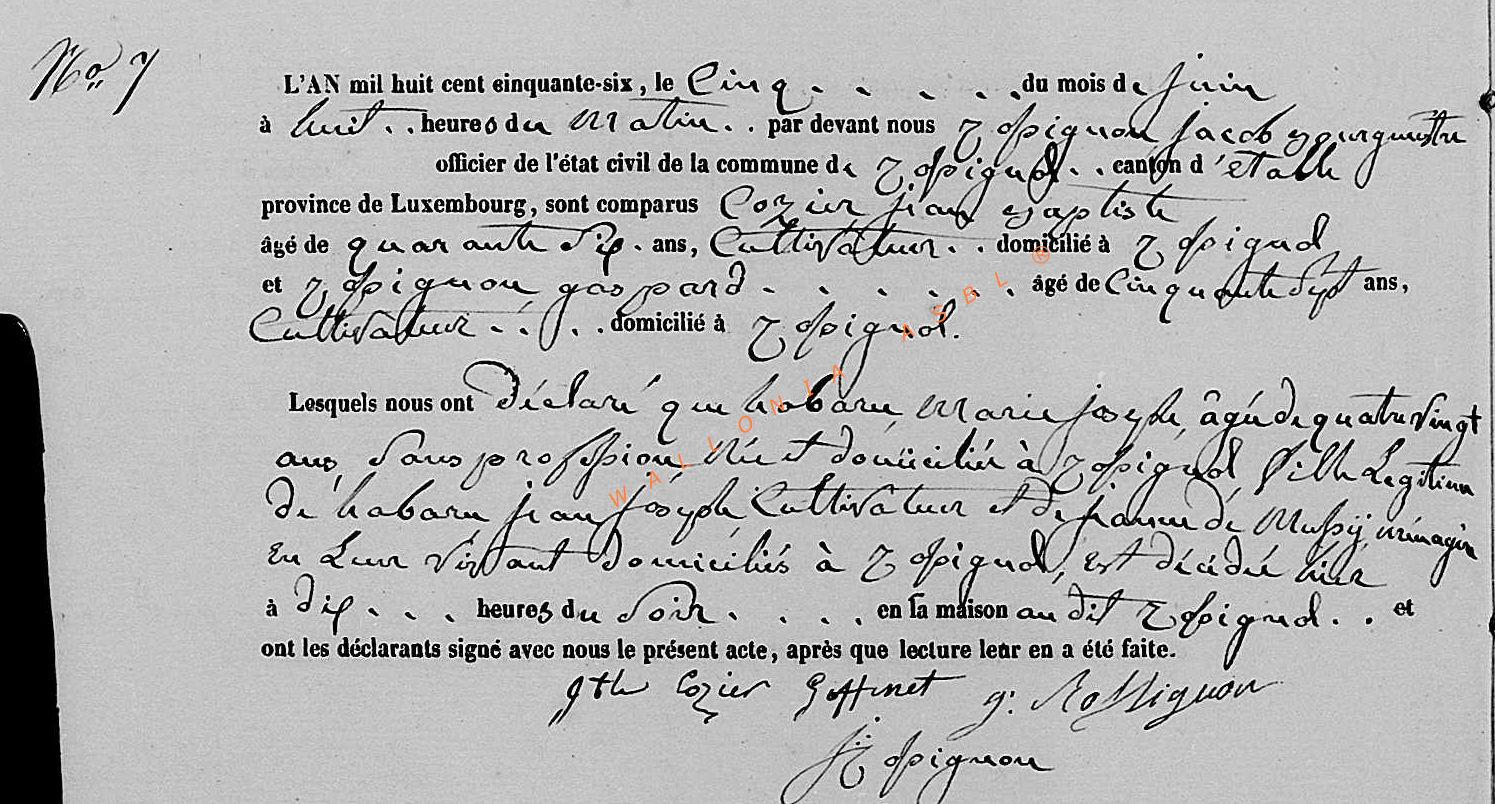 No. 7
L'AN mil huit cent cinquante-six, le Cinq . . . . . du mois de juin
à huit . . heures du Matin . . par devant nous Rossignon jacob Bourguestre
officier de l'état civil de la commune de Rossignol . . canton d'étalle
province de Luxembourg, sont comparus Cozier jean Baptiste
âgé de quarante Six . ans, Cultivateur . . domicilié à Rossignol
et Rossignon gaspard . . . . . . . âgé de Cinquante Sept ans,
Cultivateur . . . . . domicilié à Rossignol.
Lesquels nous ont Déclaré que habaru Marie joseph, âgée de quatre Vingt
ans, Sans profession Née et domiciliée à Rossignol fille Legitime
de habaru jean joseph, Cultivateur et de jeanne de Mussy ménagère
En Leur Vivant domiciliés à Rossignol, est décédée hier
à dix . . . heures du Soir . . . . en sa maison au dit Rossignol . . et
ont les déclarants signé avec nous le présent acte, après que lecture leur en a été faite.
Cozier Goffinet g: Rossignon
J Rossignon
WALLONIA ASBL ®